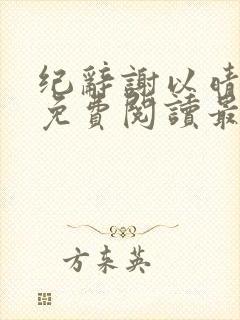 纪辭謝以晴
免費閱讀最
方东英